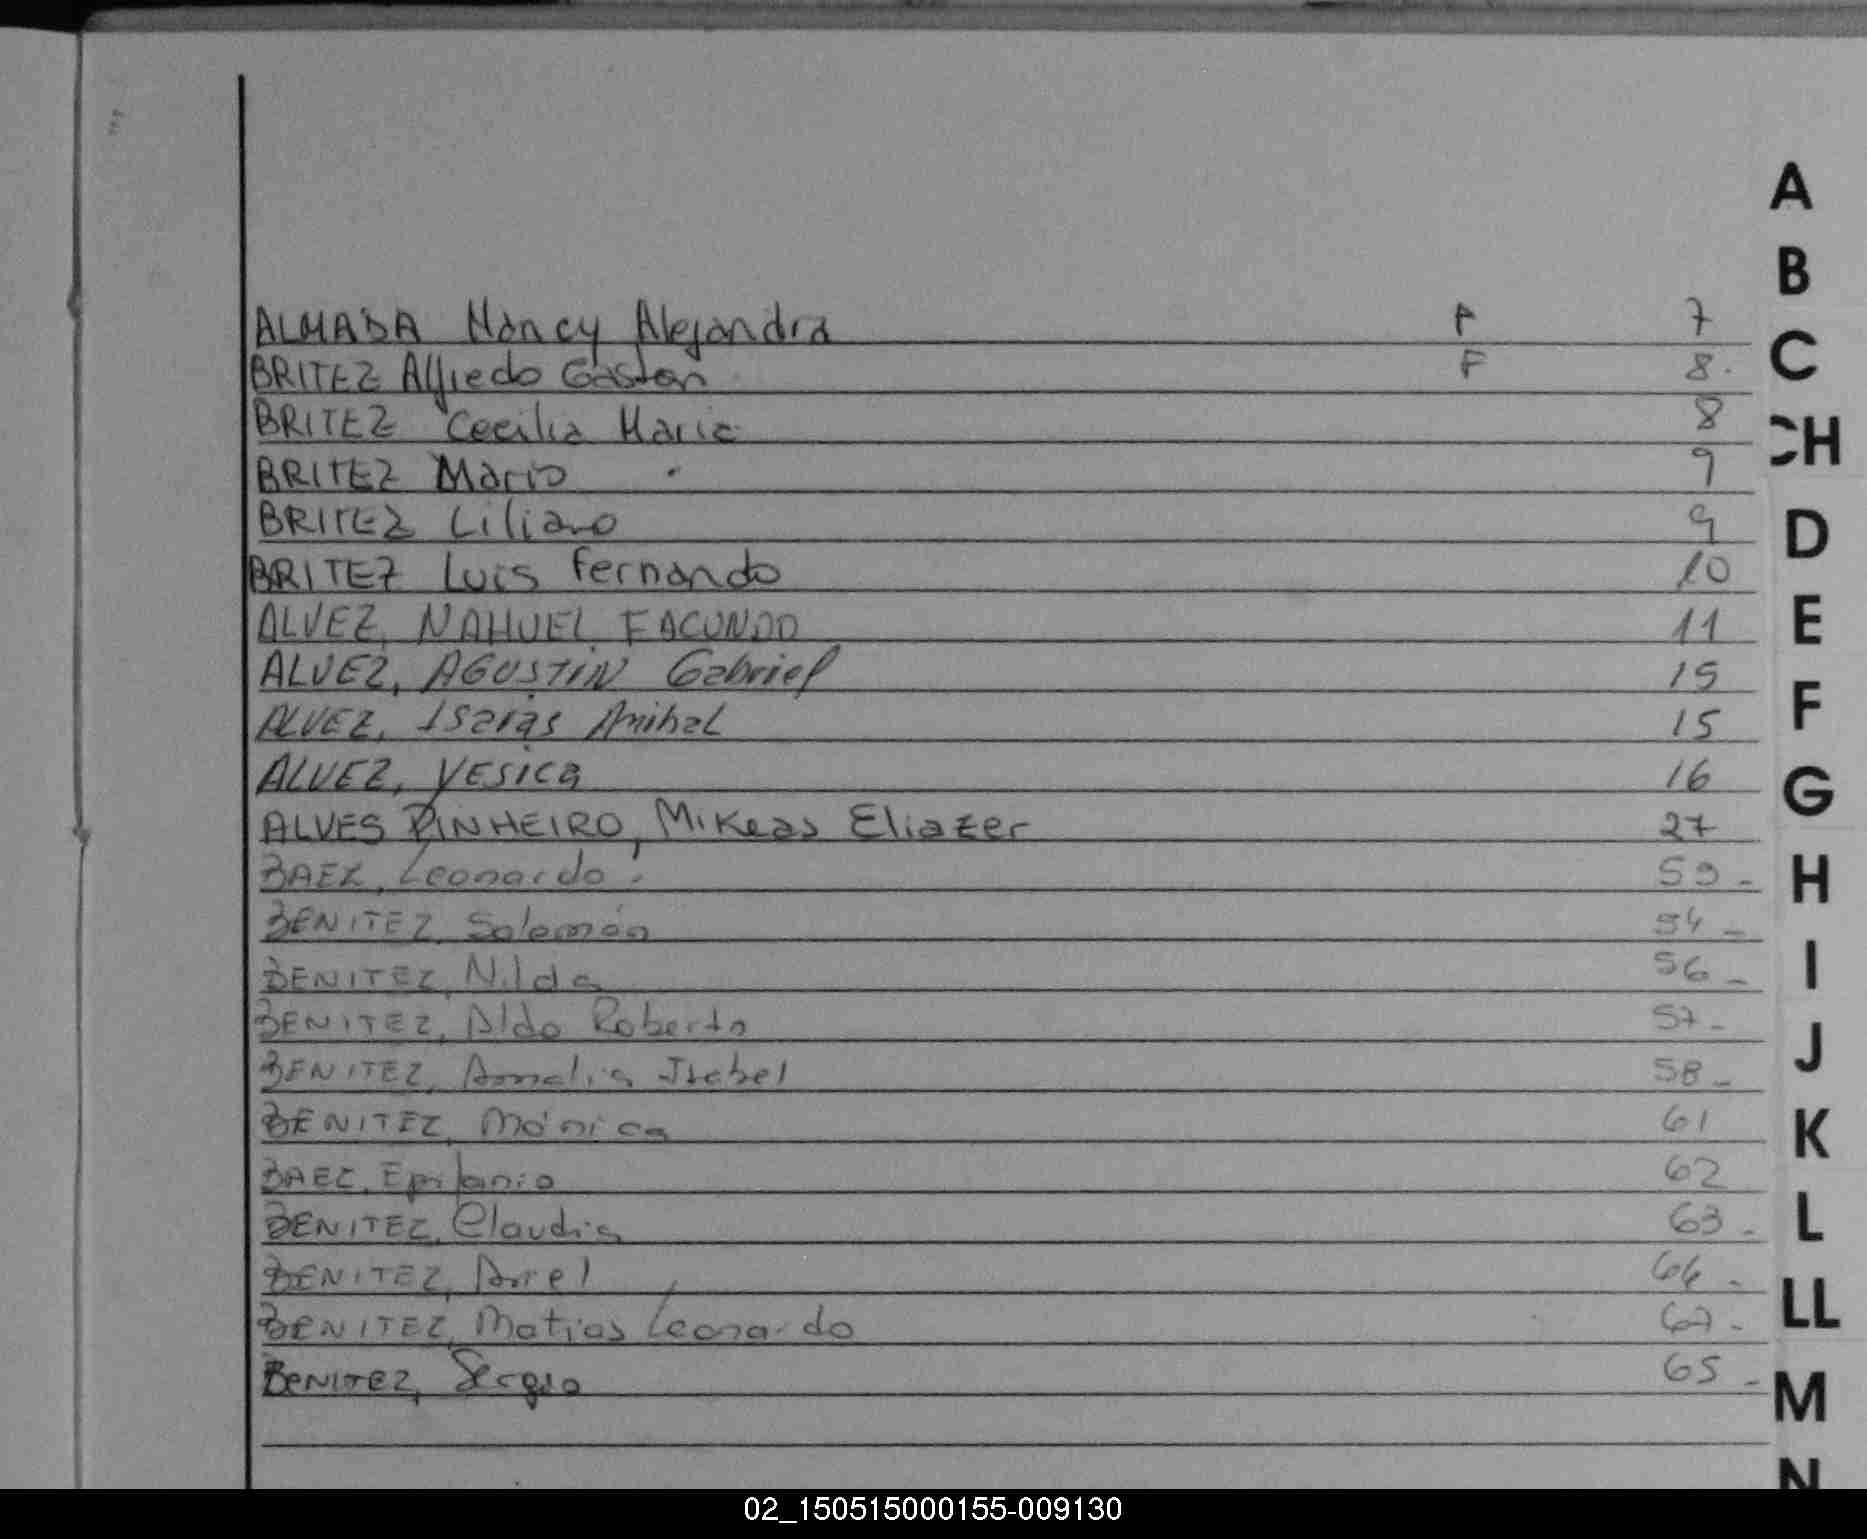 ALMADA Nancy Alejandra F 7
BRITEZ Alfredo Gaston F 8.
BRITEZ Cecilia Maria 8
BRITEZ Mario 9
BRITEZ Liliano 9
BRITEZ Luis Fernando 10
ALVEZ, NAHUEL FACUNDO 11
ALVEZ, AGUSTIN Gabriel 15
ALVEZ, Isaias Anibal 15
ALVEZ, YESICA 16
ALVES PINHEIRO, Mikeas Eliazer 27
BAEZ, Leonardo. 59-
BENITEZ, Salomón 54-
BENITEZ, Nilda 56-
BENITEZ, Aldo Roberto 57-
BENITEZ, Amalia Isabel 58-
BENITEZ, Mónica 61
BAEZ, Epifanio 62
BENITEZ, Claudia 63-
BENITEZ, Ariel 64-
BENITEZ, Matias Leonardo 67-
BENITEZ, Sergio 65-
A
B
C
CH
D
E
F
G
H
I
J
K
L
LL
M
N
02_150515000155-009130